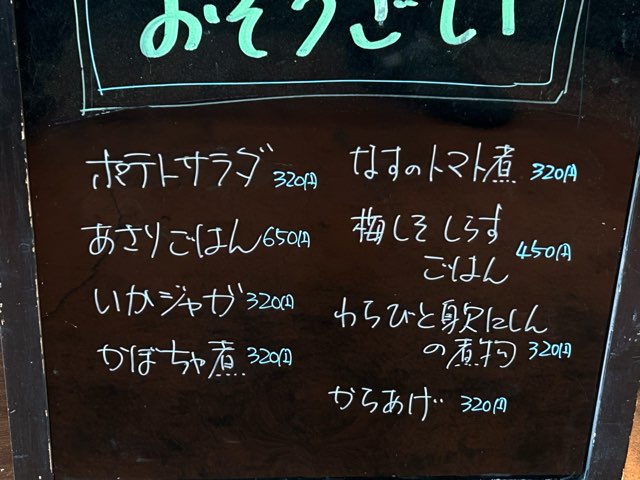 おそうざい
ポテトサラダ 320円
あさりごはん 650円
いかジャガ 320円
かぼちゃ煮 320円
なすのトマト煮 320円
梅しそしらす
ごはん 450円
わらびと身欠にしん
の煮物 320円
からあげ 320円